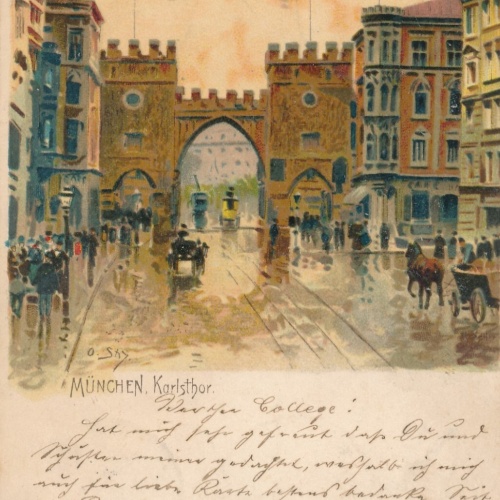 CAFE
O. Sky
MÜNCHEN, Karlsthor.
Werther College!
Hat mich sehr gefreut daß Du und
Schuster meiner gedachtet, weshalb ich mich
auch für liebe Karte bestens bedanke.